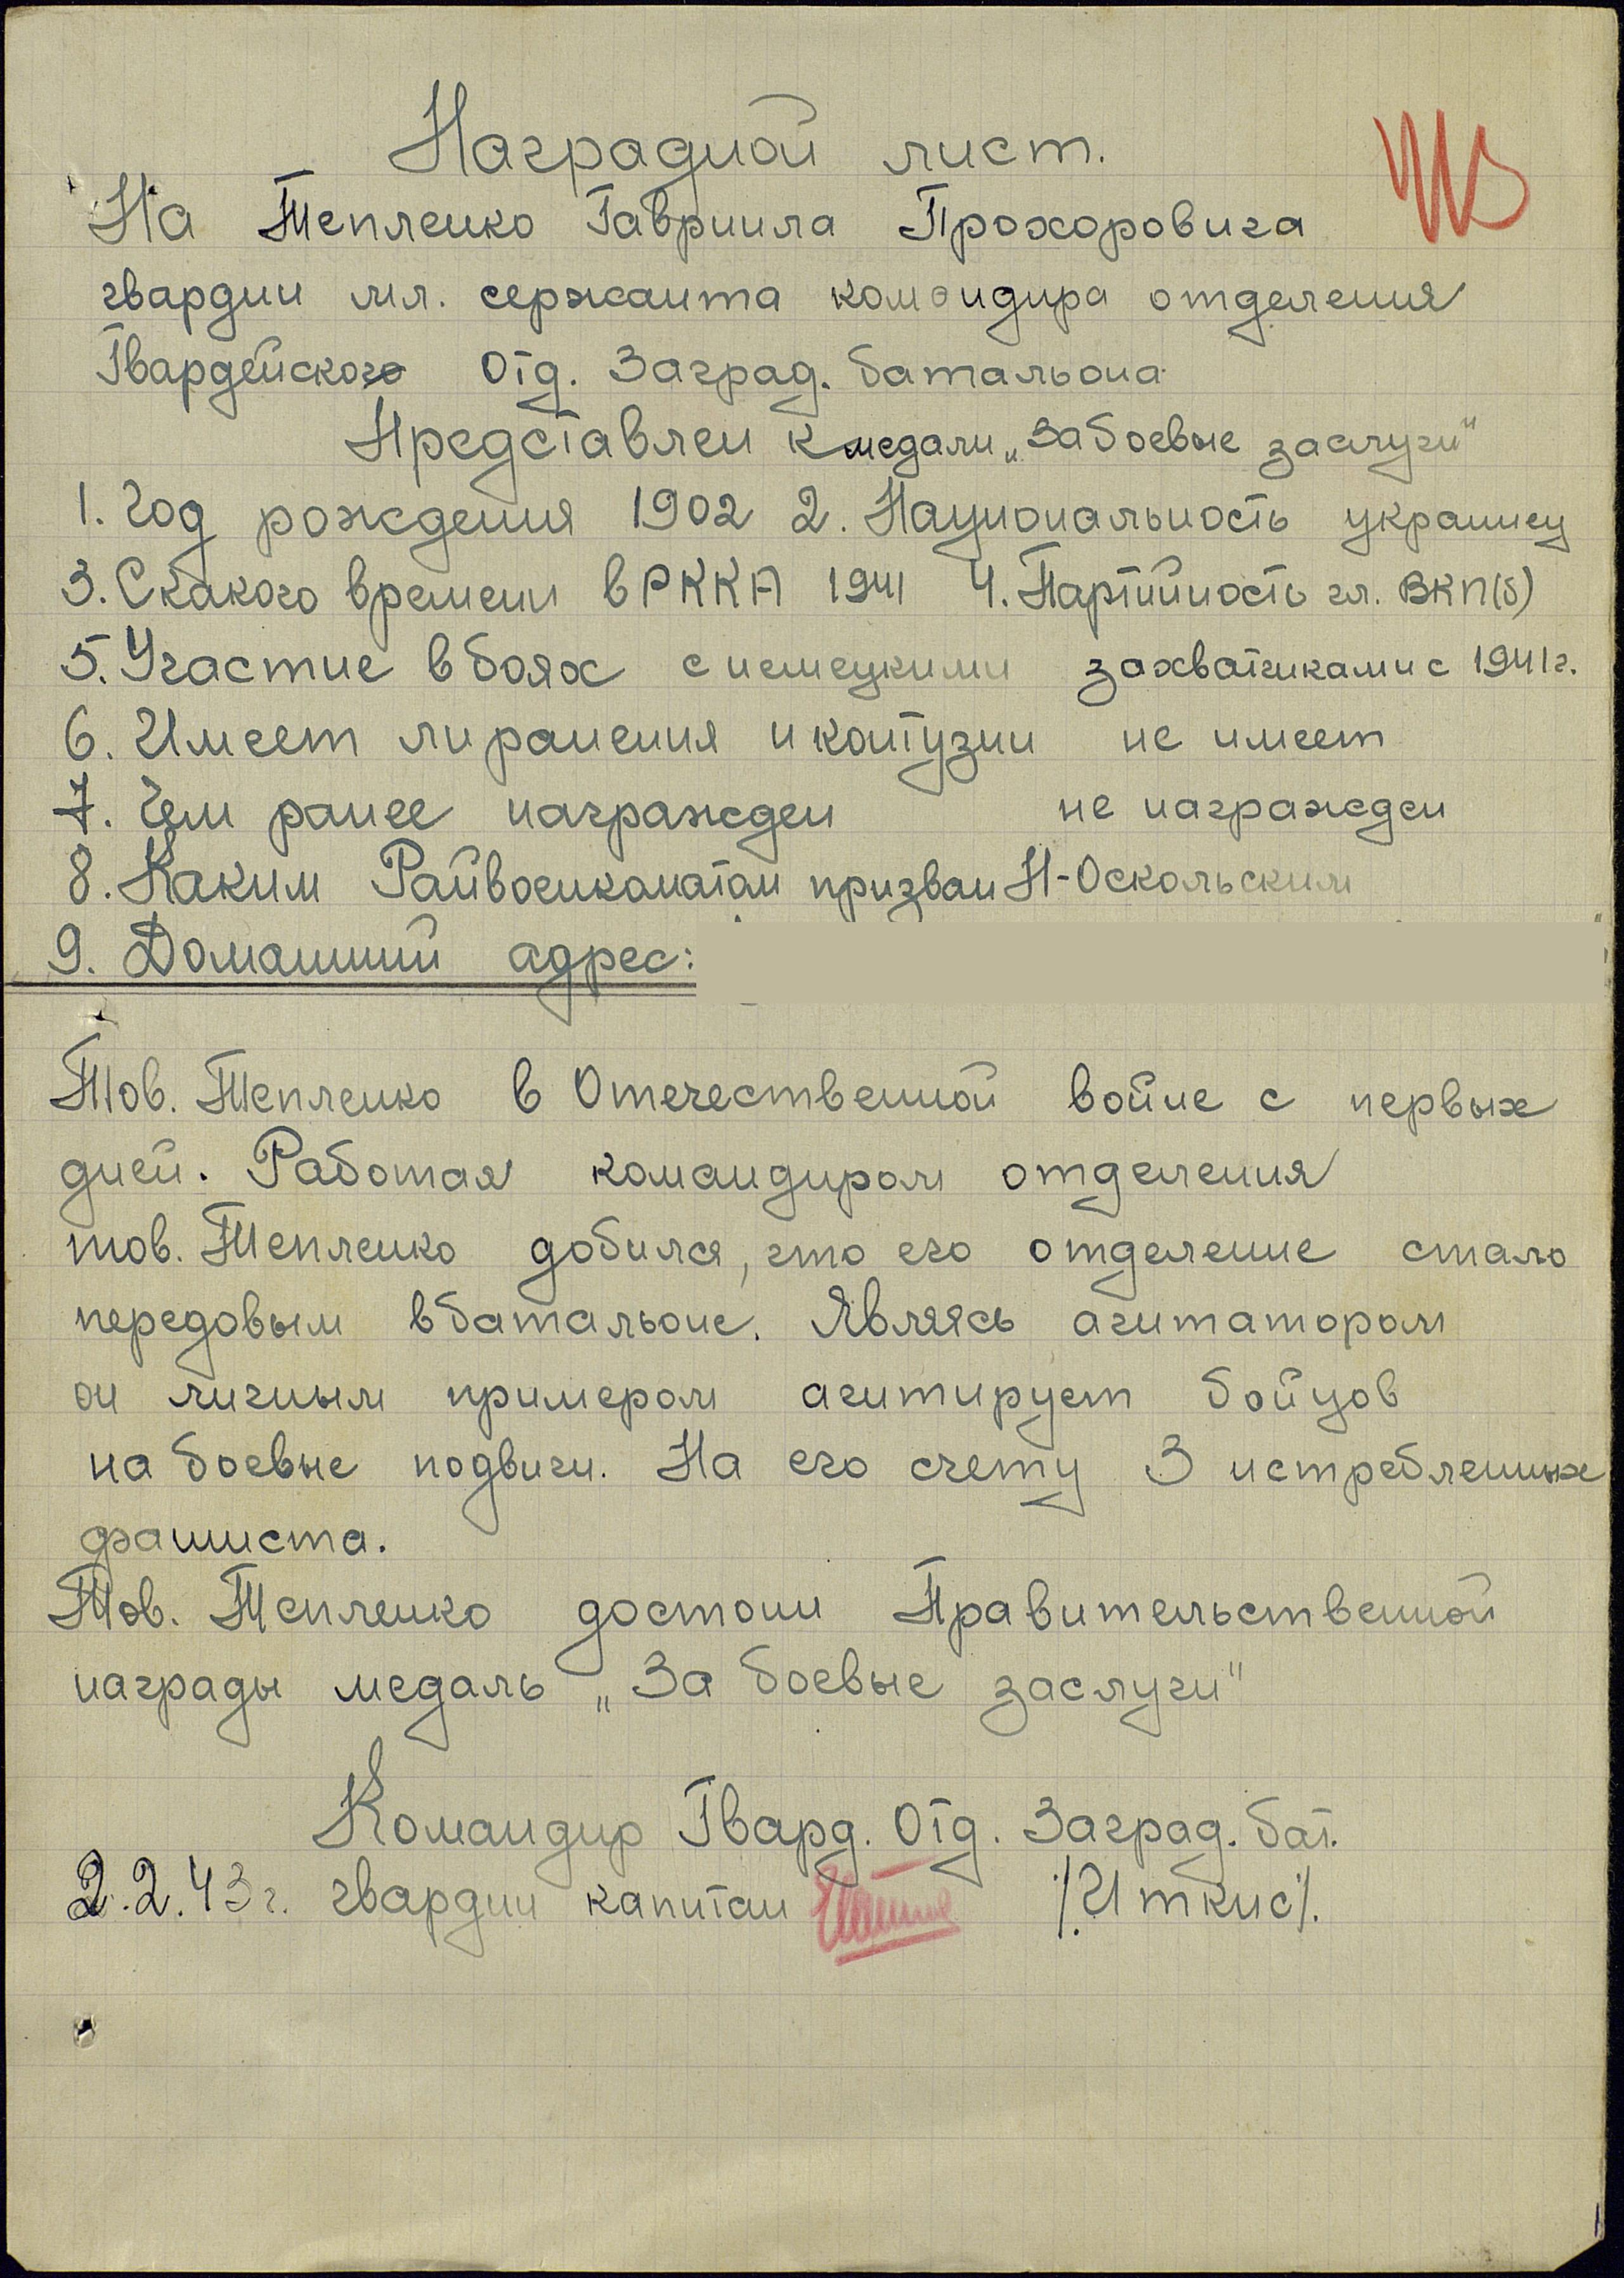 Наградной лист.
На Тепленко Гавриила Прохоровича
гвардии мл. сержанта командира отделения
Гвардейского Отд. Заград. батальона
Представлен к медали „За боевые заслуги"
1. Год рождения 1902 2. Национальность украинец
3. С какого времени в РККА 1941 4. Партийность чл. ВКП(б)
5. Участие в боях с немецкими захватчиками с 1941г.
6. Имеет ли ранения и контузии не имеет
7. Чем ранее награжден не награжден
8. Каким Райвоенкоматом призван Н-Оскольским
9. Домашний адрес:
Тов. Тепленко в Отечественной войне с первых
дней. Работая командиром отделения
тов. Тепленко добился, что его отделение стало
передовым в батальоне. Являясь агитатором
он личным примером агитирует бойцов
на боевые подвиги. На его счету 3 истребленных
фашиста.
Тов. Тепленко достоин Правительственной
награды медаль „За боевые заслуги"
Командир Гвард. Отд. Заград. бат.
2.2.43г. гвардии капитан /Иткис/.